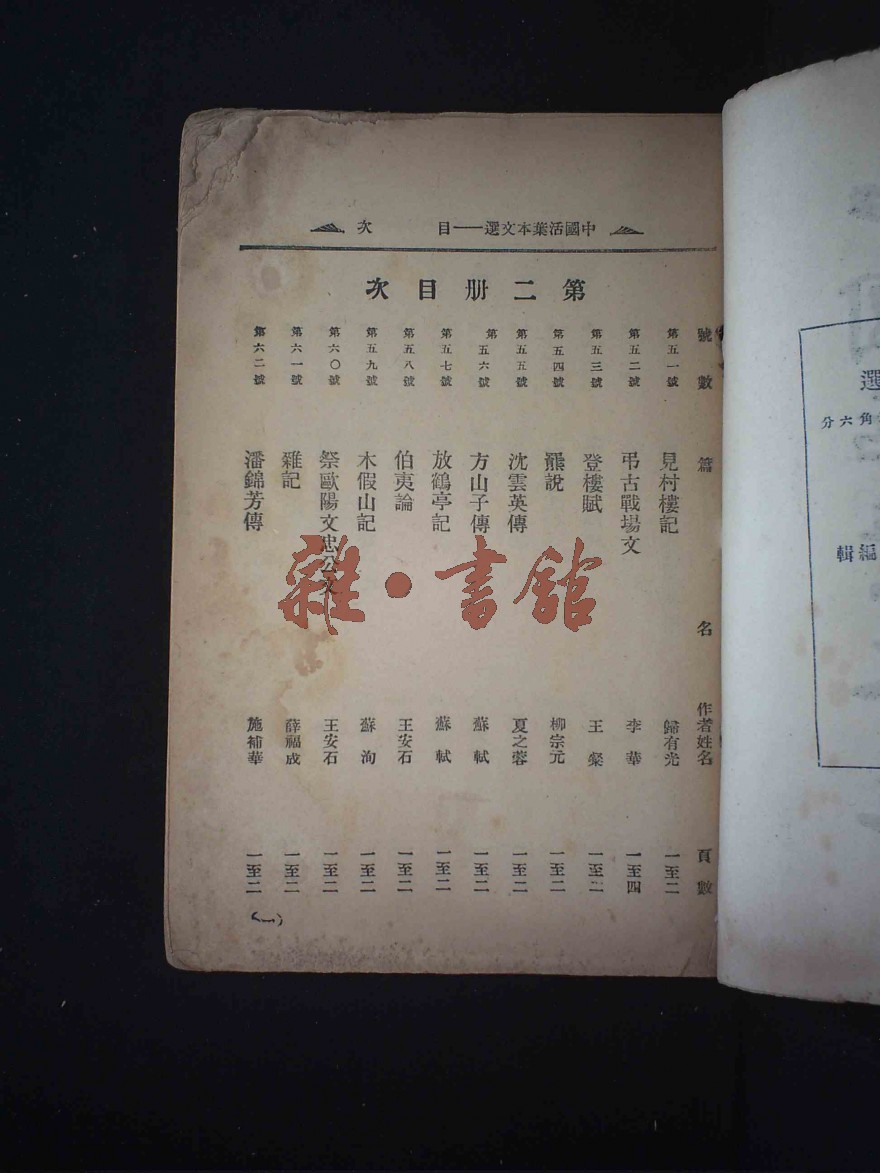 中國活葉本文選——目 次
第二册目次
號數 篇名 作者姓名 頁數
第五一號 見村樓記 歸有光 一至二
第五二號 弔古戰場文 李華 一至四
第五三號 登樓賦 王粲 一至二
第五四號 羆說 柳宗元 一至二
第五五號 沈雲英傳 夏之蓉 一至二
第五六號 方山子傳 蘇軾 一至二
第五七號 放鶴亭記 蘇軾 一至二
第五八號 伯夷論 王安石 一至二
第五九號 木假山記 蘇洵 一至二
第六〇號 祭歐陽文忠公文 王安石 一至二
第六一號 雜記 薛福成 一至二
第六二號 潘錦芳傳 施補華 一至二
(一)
雜·書館
選
角六分
編輯